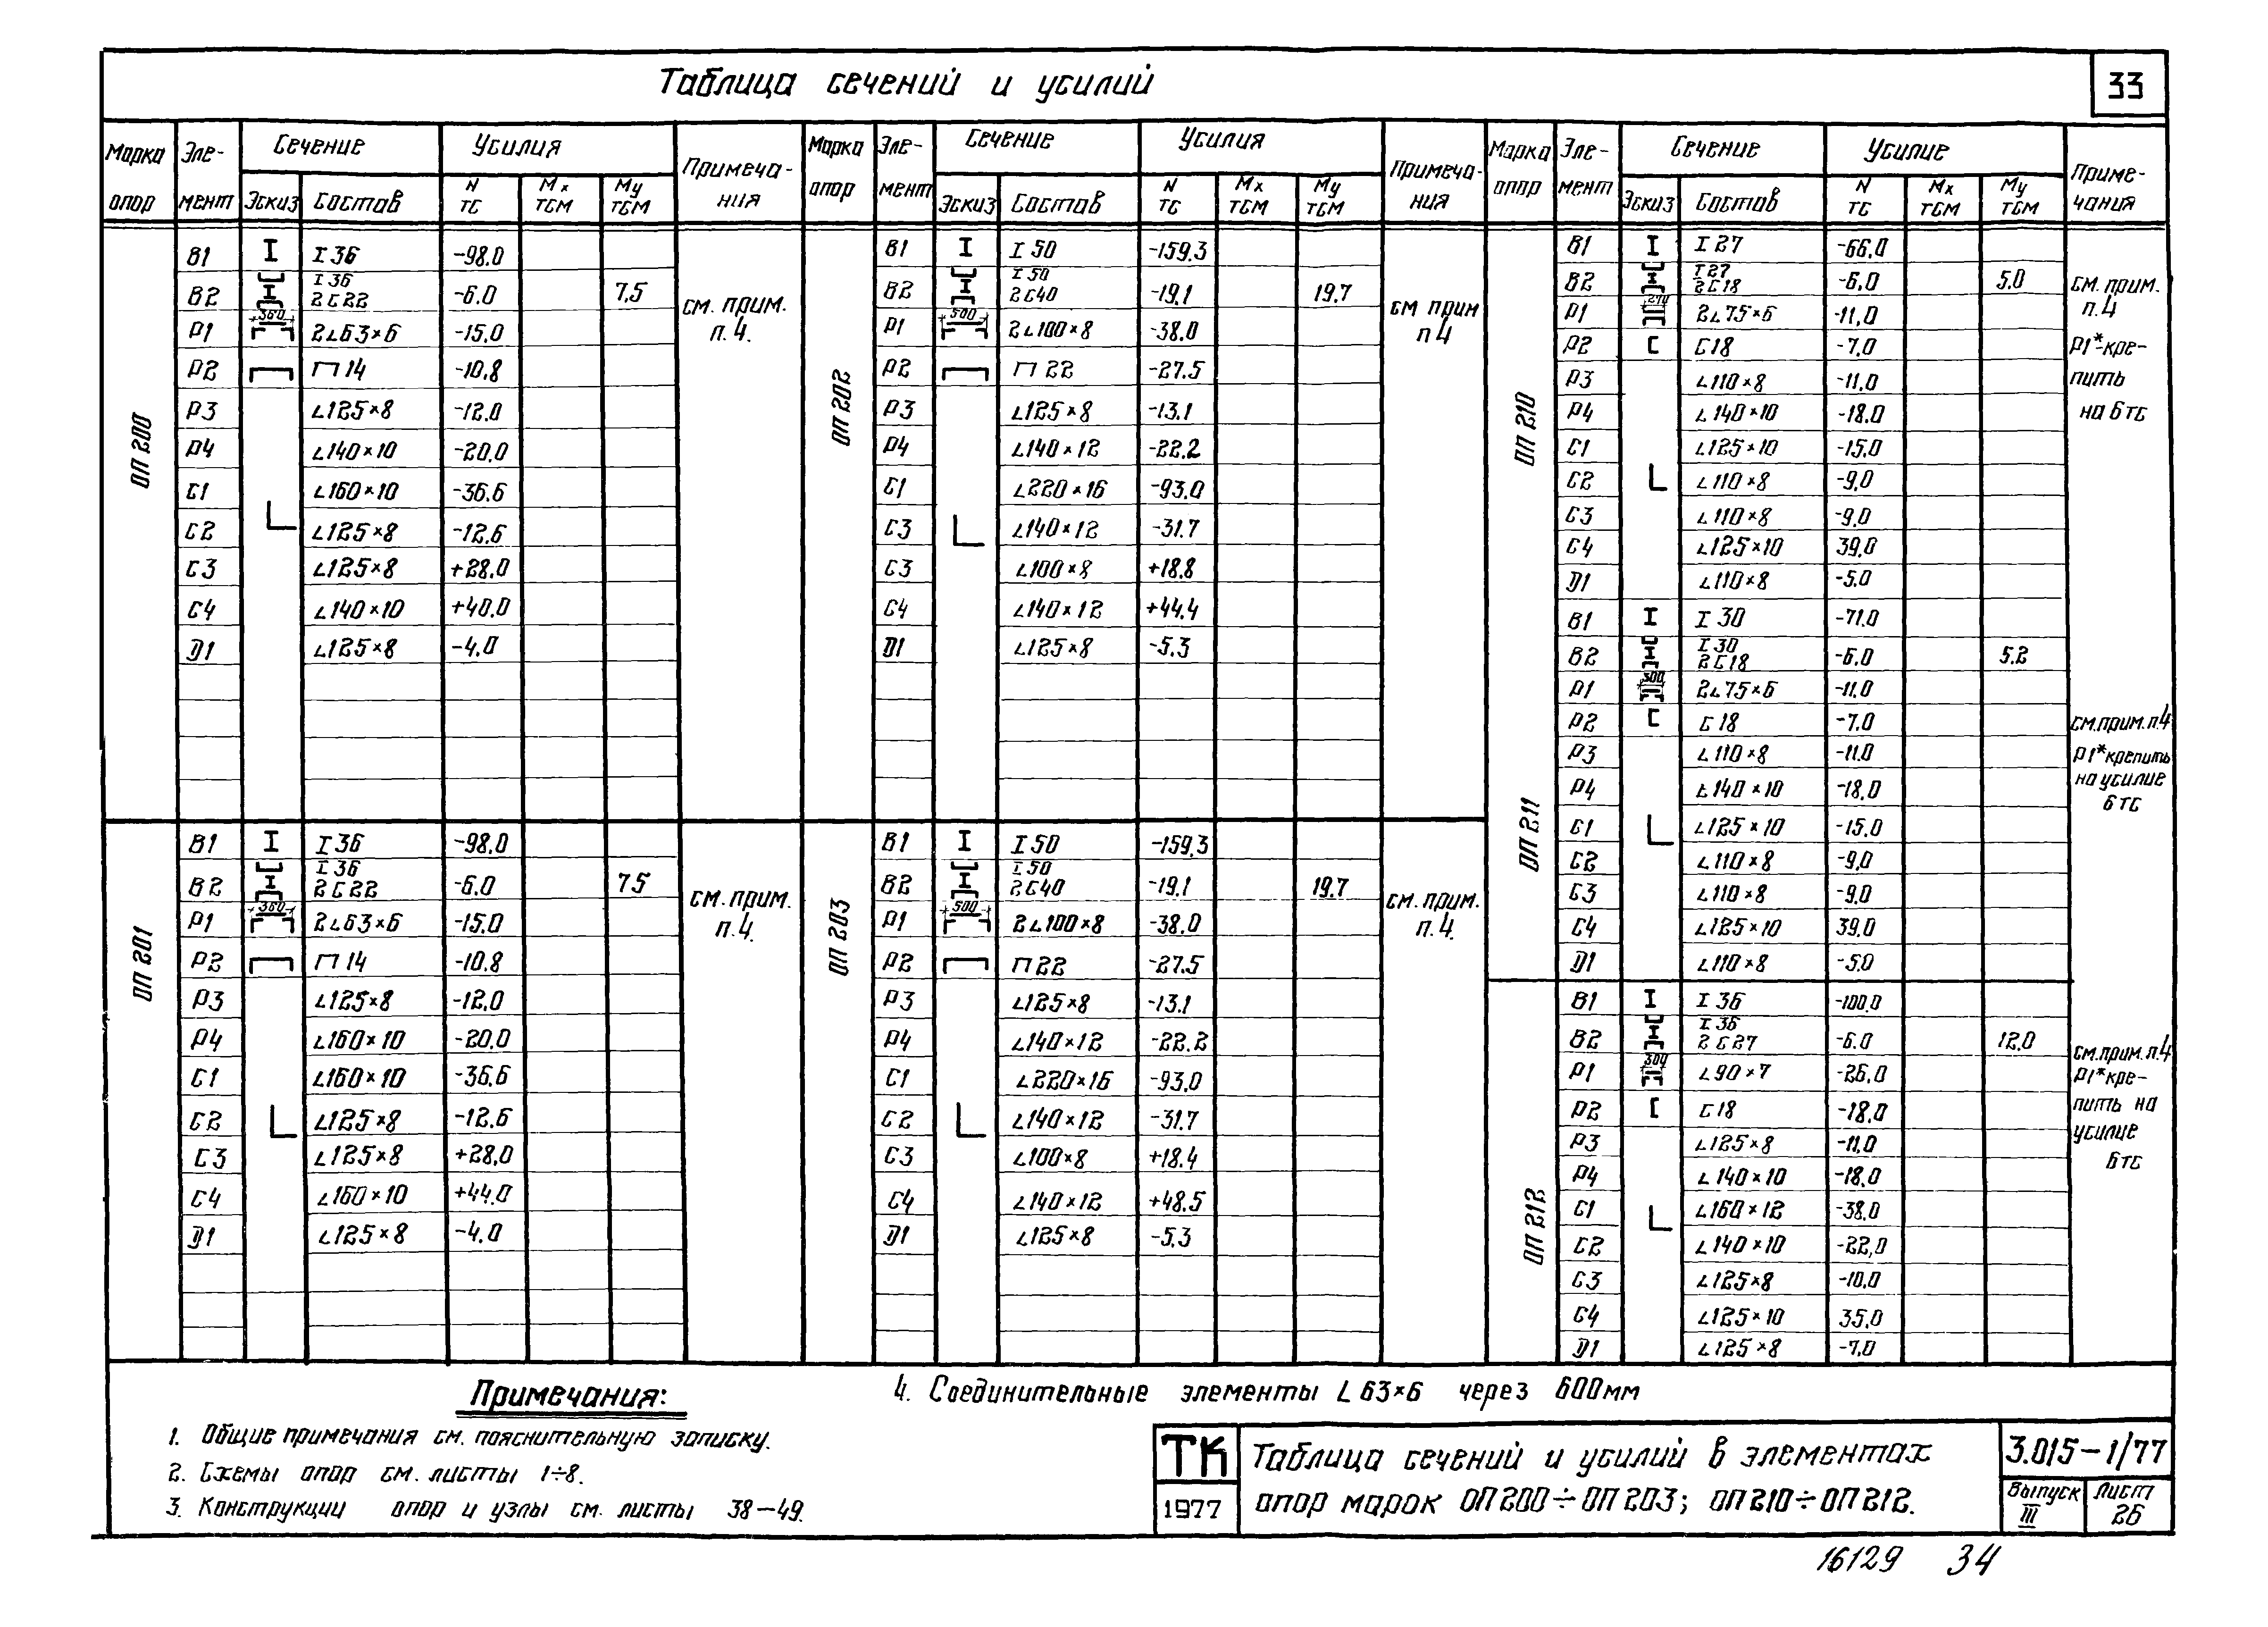 Таблица сечений и усилий
33
Марка опор Эле-мент Сечение Усилия Примеча-ния
Эскиз Состав N тс Mx тсм My тсм
ОП 200
В1 I 36 -98.0
В2 I 36 2С22 -6.0 7.5
Р1 360 2∟63×6 -15.0
Р2 П 14 -10.8
Р3 ∟125×8 -12.0
Р4 ∟140×10 -20.0
С1 ∟160×10 -36.6
С2 ∟125×8 -12.6
С3 ∟125×8 +28.0
С4 ∟140×10 +40.0
D1 ∟125×8 -4.0
см. прим.
п.4.
ОП 201
В1 I 36 -98.0
В2 I 36 2С22 -6.0 7.5
Р1 360 2∟63×6 -15.0
Р2 П 14 -10.8
Р3 ∟125×8 -12.0
Р4 ∟160×10 -20.0
С1 ∟160×10 -36.6
С2 ∟125×8 -12.6
С3 ∟125×8 +28.0
С4 ∟160×10 +44.0
D1 ∟125×8 -4.0
см. прим.
п.4.
Марка опор Эле-мент Сечение Усилия Примеча-ния
Эскиз Состав N тс Mx тсм My тсм
ОП 202
В1 I 50 -159.3
В2 I 50 2С40 -19.1 19.7
Р1 500 2∟100×8 -38.0
Р2 П 22 -27.5
Р3 ∟125×8 -13.1
Р4 ∟140×12 -22.2
С1 ∟220×16 -93.0
С3 ∟140×12 -31.7
С3 ∟100×8 +18.8
С4 ∟140×12 +44.4
D1 ∟125×8 -5.3
см прим
п 4
ОП 203
В1 I 50 -159.3
В2 I 50 2С40 -19.1 19.7
Р1 500 2∟100×8 -38.0
Р2 П 22 -27.5
Р3 ∟125×8 -13.1
Р4 ∟140×12 -22.2
С1 ∟220×16 -93.0
С2 ∟140×12 -31.7
С3 ∟100×8 +18.4
С4 ∟140×12 +48.5
D1 ∟125×8 -5.3
см. прим.
п.4.
Марка опор Эле-мент Сечение Усилие Приме-чания
Эскиз Состав N тс Mx тсм My тсм
ОП 210
В1 I 27 -66.0
В2 I 27 2С18 -6.0 5.0
Р1 270 2∟75×6 -11.0
Р2 С18 -7.0
Р3 ∟110×8 -11.0
Р4 ∟140×10 -18.0
С1 ∟125×10 -15.0
С2 ∟110×8 -9.0
С3 ∟110×8 -9.0
С4 ∟125×10 39.0
D1 ∟110×8 -5.0
см. прим.
п.4
Р1*-кре-
пить
на 6тс
ОП 211
В1 I 30 -71.0
В2 I 30 2С18 -6.0 5.2
Р1 300 2∟75×6 -11.0
Р2 С 18 -7.0
Р3 ∟110×8 -11.0
Р4 ∟140×10 -18.0
С1 ∟125×10 -15.0
С2 ∟110×8 -9.0
С3 ∟110×8 -9.0
С4 ∟125×10 39.0
D1 ∟110×8 -5.0
см.прим.п.4
Р1*крепить
на усилие
6тс
ОП 212
В1 I 36 -100.0
В2 I 36 2С27 -6.0 12.0
Р1 300 ∟90×7 -26.0
Р2 С18 -18.0
Р3 ∟125×8 -11.0
Р4 ∟140×10 -18.0
С1 ∟160×12 -38.0
С2 ∟140×10 -22.0
С3 ∟125×8 -10.0
С4 ∟125×10 35.0
D1 ∟125×8 -7.0
см.прим.п.4
Р1*кре-
пить на
усилие
6тс
Примечания:
1. Общие примечания см. пояснительную записку.
2. Схемы опор см. листы 1÷8.
3. Конструкции опор и узлы см. листы 38—49.
4. Соединительные элементы ∟63×6 через 600мм
ТК
1977
Таблица сечений и усилий в элементах
опор марок ОП200÷ОП203; ОП210÷ОП212.
3.015-1/77
Выпуск III
Лист 26
16129 34